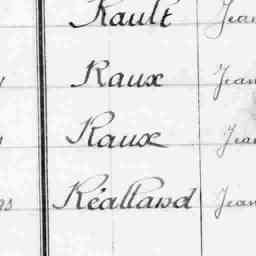 Rault Jean
Raux Jean
Raux Jean
Réalland Jean